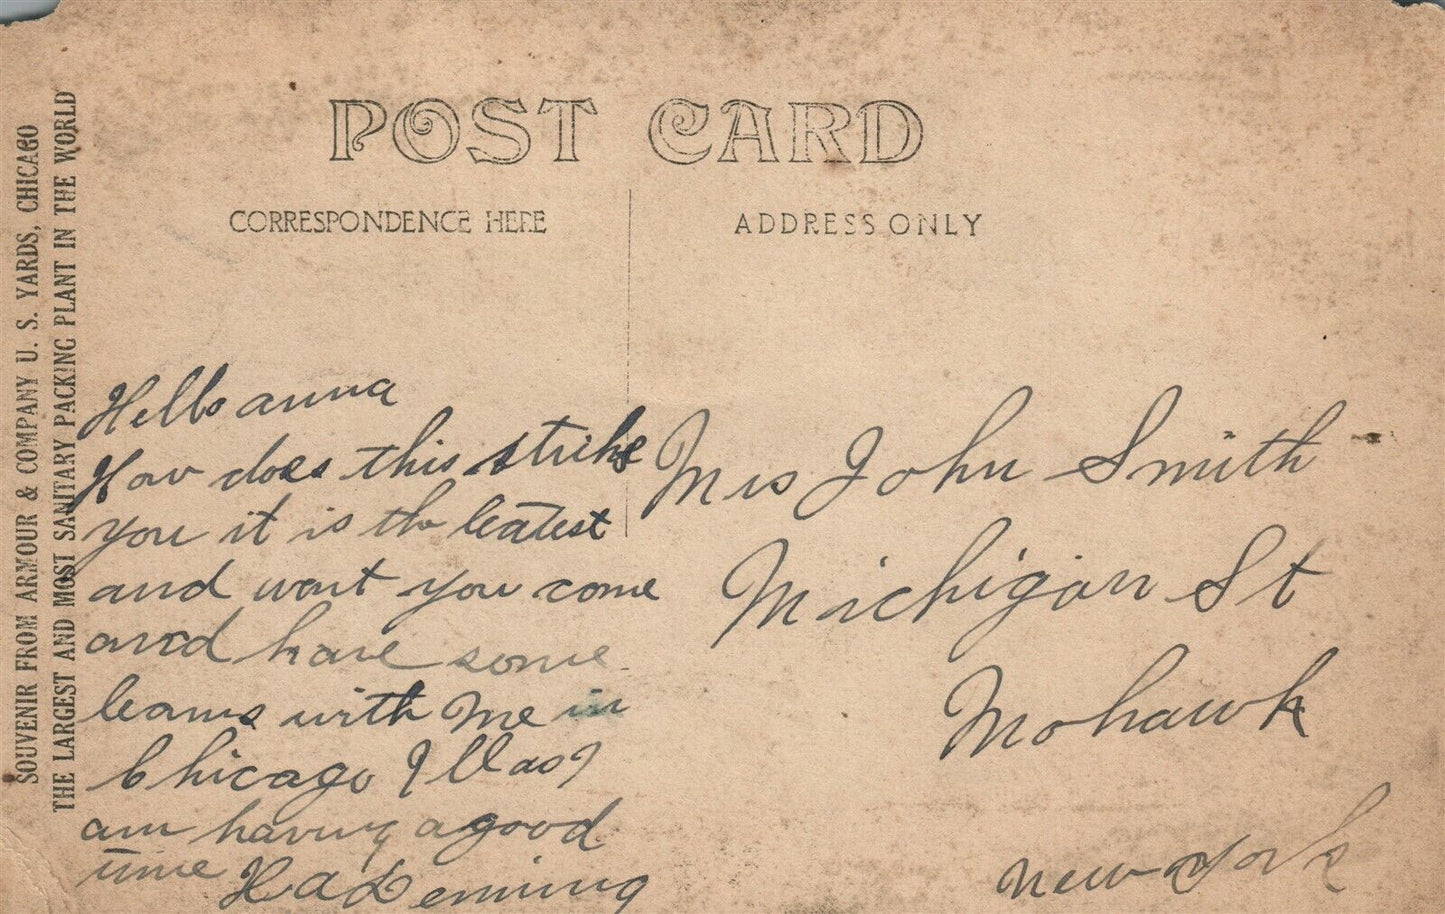 POST CARD
CORRESPONDENCE HERE
ADDRESS ONLY
SOUVENIR FROM ARMOUR & COMPANY U. S. YARDS, CHICAGO
THE LARGEST AND MOST SANITARY PACKING PLANT IN THE WORLD
Hello anna
How does this strike
you it is the leatest
and wont you come
and have some
beans with me in
Chicago Ill as I
am having a good
time H a Deming
Mrs John Smith
Michigan St
Mohawk
New York